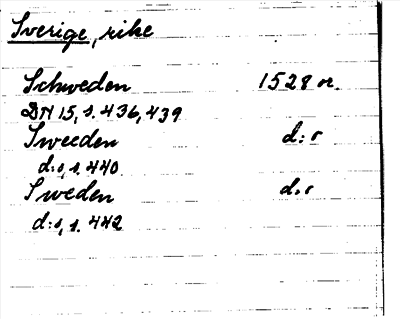 Sverige, rike
Schweden 1528 or.
DN 15, s. 436, 439
Sweeden d:o
d:o, s. 440
Sweden d:o
d:o, s. 442